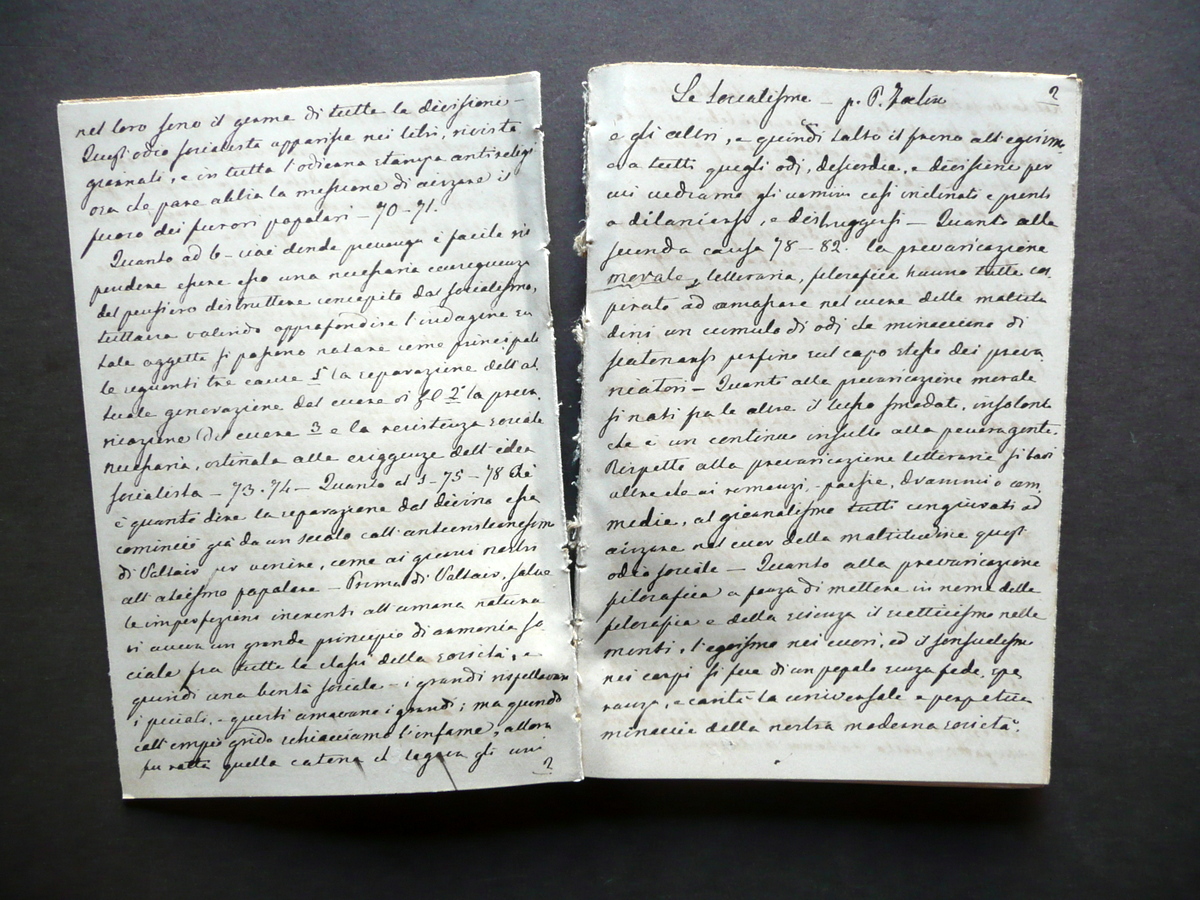 nel loro seno il germe di tutte la divisioni –
Quest'odio socialista apparisce nei libri, riviste
giornali, e in tutta l'odierna stampa antireligi
osa che pare abbia la missione di aizzare il
fuoco dei furori popolari – 70–71.
Quanto ad b – cioè donde provenga è facile ris
pondere essere esso una necessaria conseguenza
del pensiero distruttore concepito dal socialismo,
tuttavia volendo approfondire l'indagine su
tale oggetto si possono notare come principali
le seguenti tre cause 1ª la separazione dell'at
tuale generazione dal cuore di 2ª la preva
ricazione del cuore 3 e la resistenza sociale
necessaria, ostinata alle esigenze dell'idea
socialista – 73.74 – Quanto al 1 – 75 – 78 Ciò
è quanto dire la separazione dal divino essa
cominciò già da un secolo coll'anticristianesimo
di Voltair per venire, come ai giorni nostri
all'ateismo popolare – Prima di Voltair, salve
le imperfezioni inerenti all'umana natura
vi aveva un grande principio di armonia so
ciale fra tutte le classi della società, e
quindi una bontà sociale – i grandi rispettavano
i piccioli, – questi amavano i grandi; ma quando
coll'empio grido schiacciamo l'infame, allora
fu rotta quella catena che legava gli uni
2
Le Socialisme – p. P. Felix
2
e gli altri, e quindi tolto il freno all'egoismo
e a tutti quegli odi, discordie, e divisioni per
cui vediamo gli uomini così inclinati e pronti
a dilaniarsi, e distruggersi – Quanto alla
seconda causa 78 – 82 – la prevaricazione
morale, letteraria, filosofica hanno tutte coo
perato ad ammassare nel cuore delle moltitu
dini un cumulo di odi che minacciano di
scatenarsi perfino sul capo stesso dei preva
ricatori – Quanto alla prevaricazione morale
si noti fra le altre il lusso smodato, insolente
che è un continuo insulto alla povera gente.
Rispetto alla prevaricazione letteraria si badi
oltre che ai romanzi, – poesie, drammi o com
medie, al giornalismo tutti congiurati ad
aizzare nel cuor della moltitudine quest'
odio sociale – Quanto alla prevaricazione
filosofica a forza di mettere in nome della
filosofia e della scienza il scetticismo nelle
menti, l'egoismo nei cuori, ed il sensualismo
nei corpi si fece di un popolo senza fede, spe
ranza, e carità la universale e perpetua
minaccia della nostra moderna società.